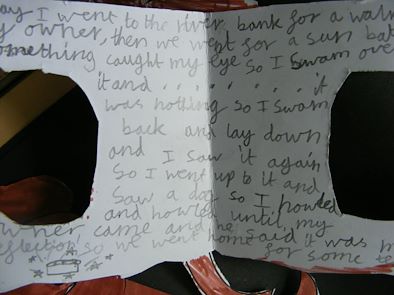 ay I went to the river bank for a walk
y owner, then we went for a sun bat
omething caught my eye so I swam ove
it and . . . . . . . . it
was nothing so I swam
back and lay down
and I saw it again
So I went up to it and
Saw a dog so I howled
and howled until my
wner came and he said it was m
eflection! so we went home for some te